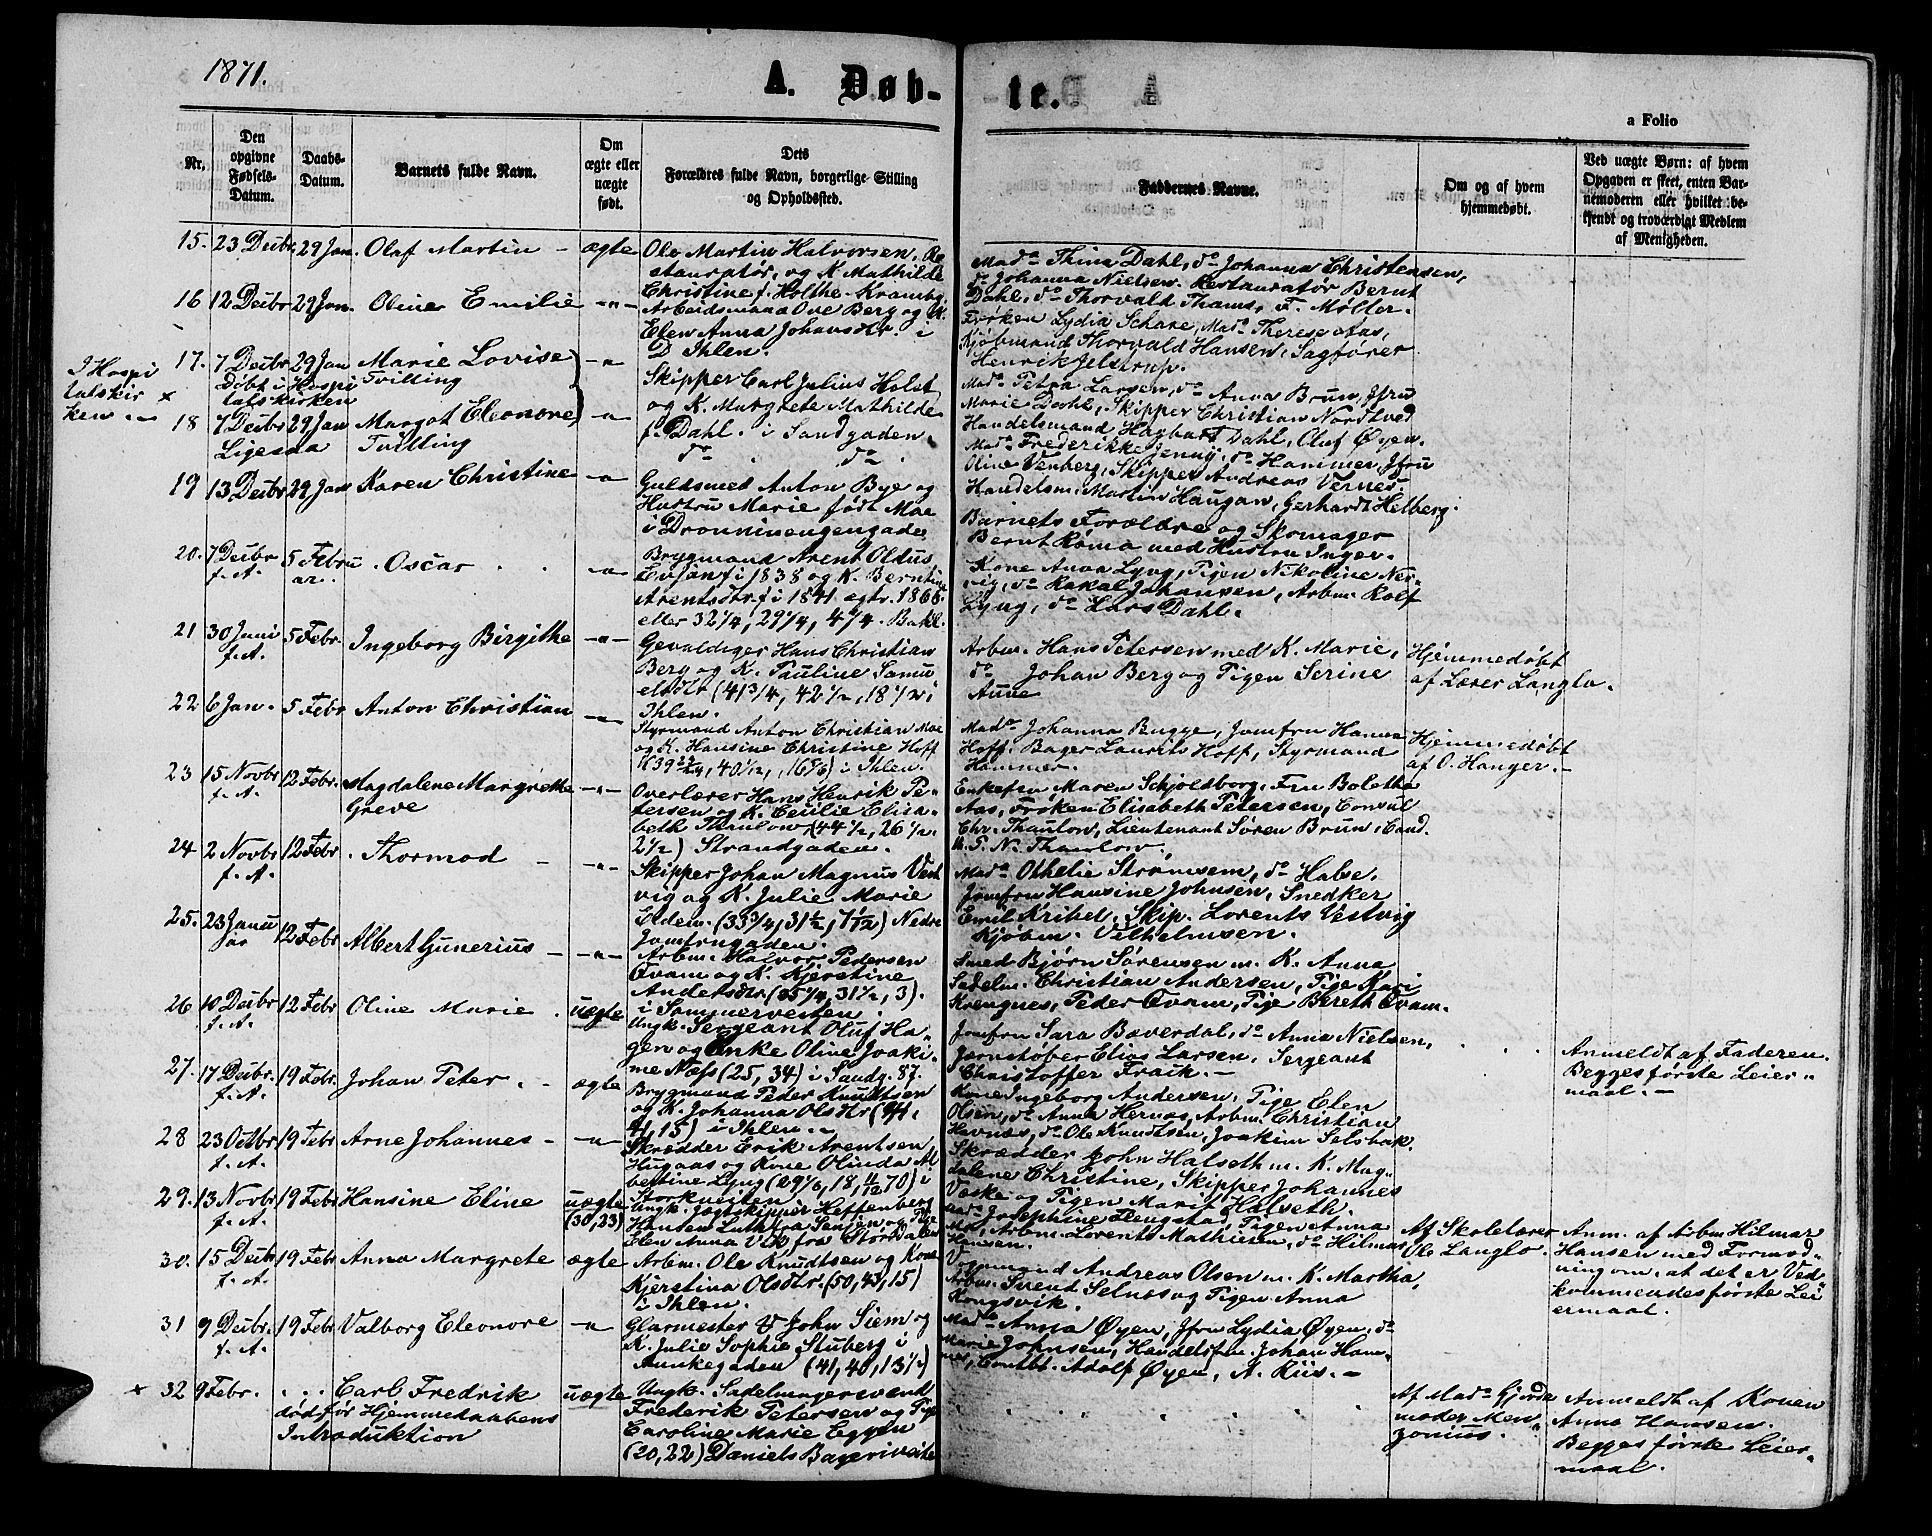 1871.
A. Døb-
te.
a Folio
Nr.
Den opgivne Fødsels-Datum.
Daabs-Datum.
Barnets fulde Navn.
Om ægte eller uægte født.
Dets Forældres fulde Navn, borgerlige Stilling og Opholdssted.
Faddernes Navne.
Om og af hvem hjemmedøbt.
Ved uægte Børn: af hvem Opgaven er skeet, enten Barnemoderen eller hvilket bekjendt og troværdigt Medlem af Menigheden.
15. 23 Decbr 29 Jan. Olaf Martin - ægte
Ole Martin Halvorsen, Re-
stauratør, og K. Mathilde
Christine f. Holthe. Krambg.
Mada Thina Dahl, do Johanna Christensen,
do Johanna Nielsen. Restauratør Bernt
Dahl, do Thorvald Thams, F. Møller.
16 12 Decbr 29 Jan. Oline Emilie -"-
Arbeidsmand Ove Berg og K.
Elen Anna Johansdtr. i
D Ihlen.
Frøken Lydia Schare, Mada Therese Aas,
Kjøbmand Thorvald Hansen, Sagfører
Henrik Jelstrup.
I Hospi
talskir x
ken. -
17. 7 Decbr 29 Jan Marie Lovise -"-
Døbt i Hospi Tvilling
talskirken
Skipper Carl Julius Holst
og K. Margrete Mathilde
f. Dahl. i Sandgaden.
Mada Petra Larsen, do Anna Brun, Jfru
Marie Dahl, Skipper Christian Nordtved
Handelsmand Hagbart Dahl, Oluf Øyen.
18 7 Decbr 29 Jan Margot Eleonore -"-
Ligesaa Tvilling
do do
Mada Frederikke Jenny, do Hammer, Jfru
Oline Venberg, Skipper Andreas Verner.
Handelsm. Martin Haugan, Gerhardt Helberg.
19 13 Decbr 29 Jan Karen Christine -"-
Guldsmed Anton Bye og
Hustru Marie født Moe
i Dronningengaden
Barnets Forældre og Skomager
Bernt Roma med Hustru Inger.
20. 7 Decbr 5 Febru . Oscar . . -"-
f. A. ar.
Brygmand Arent Oldus
Evjen f i 1838 og K. Berntine
Arentsdtr. f i 1841. egtv. 1866
eller 32 1/4, 29 1/4, 4 1/4. Bakl.
Kone Anna Lyng, Pigen Nikoline Ner-
vig, do Rakal Johansen, Arbm. Rolf
Lyng, do Lars Dahl.
21 30 Juni 5 Febr. Ingeborg Birgithe -"-
f. A.
Gevaldiger Hans Christian
Berg og K. Pauline Samu
elsdtr (41 3/4, 42 1/2, 18 1/2) i
Ihlen.
Arbm. Hans Petersen med K. Marie,
do Johan Berg og Pigen Serine
Aune
Hjemmedøbt
af Lærer Langlo.
22 6 Jan. 5 Febr Anton Christian -"-
Styrmand Anton Christian Moe
og K. Hansine Christine Hoff
i Ihlen.
Mada Johanna Bugge, Jomfru Hanna
Hoff. Bager Laurits Hoff, Styrmand
Hammer.
Hjemmedøbt
af O. Hanger. -
23 15 Novbr 12 Febr. Magdalene Margrethe -"-
f. A. Greve
Overlærer Hans Henrik Pe-
tersen og K. Cecilie Elisa-
beth Thaulow (44 1/2, 26 1/2.
2 1/2) Strandgaden.
Enkefru Maren Schjoldborg, Fru Boletha
Aas, Frøken Elisabeth Petersen, Consul
Chr. Thaulow, Lieutenant Søren Brun, Cand.
N. Thaulow.
24 2 Novbr 12 Febr . Thormod - -"-
f. A.
Skipper Johan Magnus Vest
vig og K. Julie Marie
Elden. (33 3/4, 31 1/2, 7 1/2) Nedre
Jomfrugaden.
Mada Othelie Strømsem, do Halse.
Jomfru Hansine Johnsen, Snedker
Emil Kribel, Skip. Lorents Vestvig
Kjøbm. Vilhelmsen.
25. 23 Janu 12 Febr Albert Gunerius - -"-
ar
Arbm. Halvor Pedersen
Øvam og K. Kjerstine
Andersdtr (35 1/4, 31 1/2, 3).
i Sommervesten.
Smed Bjørn Sørensen m. K. Anna
Sadelm. Christian Andersen, Pige Kari
Krengnes, Peder Qvam, Pige Bereth Qvam.
26 10 Decbr 12 Febr Oline Marie . uægte
f. A.
Ungk. Sergeant Oluf Ha-
gen og Enke Oline Joaki-
me Næss (25, 34) i Sandg. 87.
Jomfru Sara Bæverdal, do Anna Nielsen,
Jernstøber Elias Larsen, Sergeant
Christoffer Fraik. -
Anmeldt af Faderen.
Begges første Leier-
maal. -
27. 17 Decbr. 19 Febr. Johan Peter. - ægte
f. A.
Brygmand Peder Knudtsen
og K. Johanna Olsdtr (44.
41, 15) i Ihlen.
Kone Ingeborg Andersen, Pige Elen
Olsen, do Anna Hernæs, Arbm. Christian
Havnæs, do Ole Knudtsen, Joakim Selsbak.
28 23 Octbr 19 Febr Arne Johannes - -"-
f. A.
Skrædder Erik Arentsen
Hugaas og Kone Olinda Al
bertine Lyng (29 1/6, 18, 4/12 70) i
Storkveiten.
Skrædder John Halseth m. K. Mag-
dalene Christine, Skipper Johannes
Væske og Pigen Marit Halseth.
29. 13 Novbr 19 Febr Hansine Eline uægte
f. A. (30, 23)
Ungk. Jagtskipper Heffenberg
Hansen Luth fra Senjen og Pige
Elen Anna Vik fra Størdalen
Josephine Flengstad, Pigen Anna
Moe, Arbm. Lorents Mathiesen, do Hilmar
Hansen.
Af Skolelærer
Ole Langlo.
Anm. af Arbm Hilmar
Hansen med Formod-
ning om, at det er Ved
kommendes første Lei
ermaal.
30. 15 Decbr 19 Febr Anna Margrete ægte
f. A.
Arbm. Ole Knudtsen og Kone
Kjerstina Olsdtr. (50, 43, 15)
i Ihlen.
Vognmand Andreas Olsen m. K. Martha,
Arbm. Svend Selnæs og Pigen Anna
Kongsvik.
31 9 Decbr. 19 Febr Valborg Eleonore -"-
f. A.
Glarmester John Siem og
K. Julie Sophie Stuberg i
Munkegaden (41, 40, 13 1/2)
Mada Anna Øyen, Jfru Lydia Øyen, do
Marie Johnsen, Handelsfm. Johan Ham-
mer, Contbt. Adolf Øyen, A. Riis. -
x 32 9 Febr. . . . Carl Fredrik uægte
død før Hjemmedaabens
Introduktion
Ungk. Sadelmagersvend
Frederik Petersen og Pige
Caroline Marie Eggen
(20, 22) Daniels Bagerveite
Af Mada Gjorde
moder Men
zonius.
Anmeldt af Konen
Anna Hansen.
Begges første Leier-
maal.